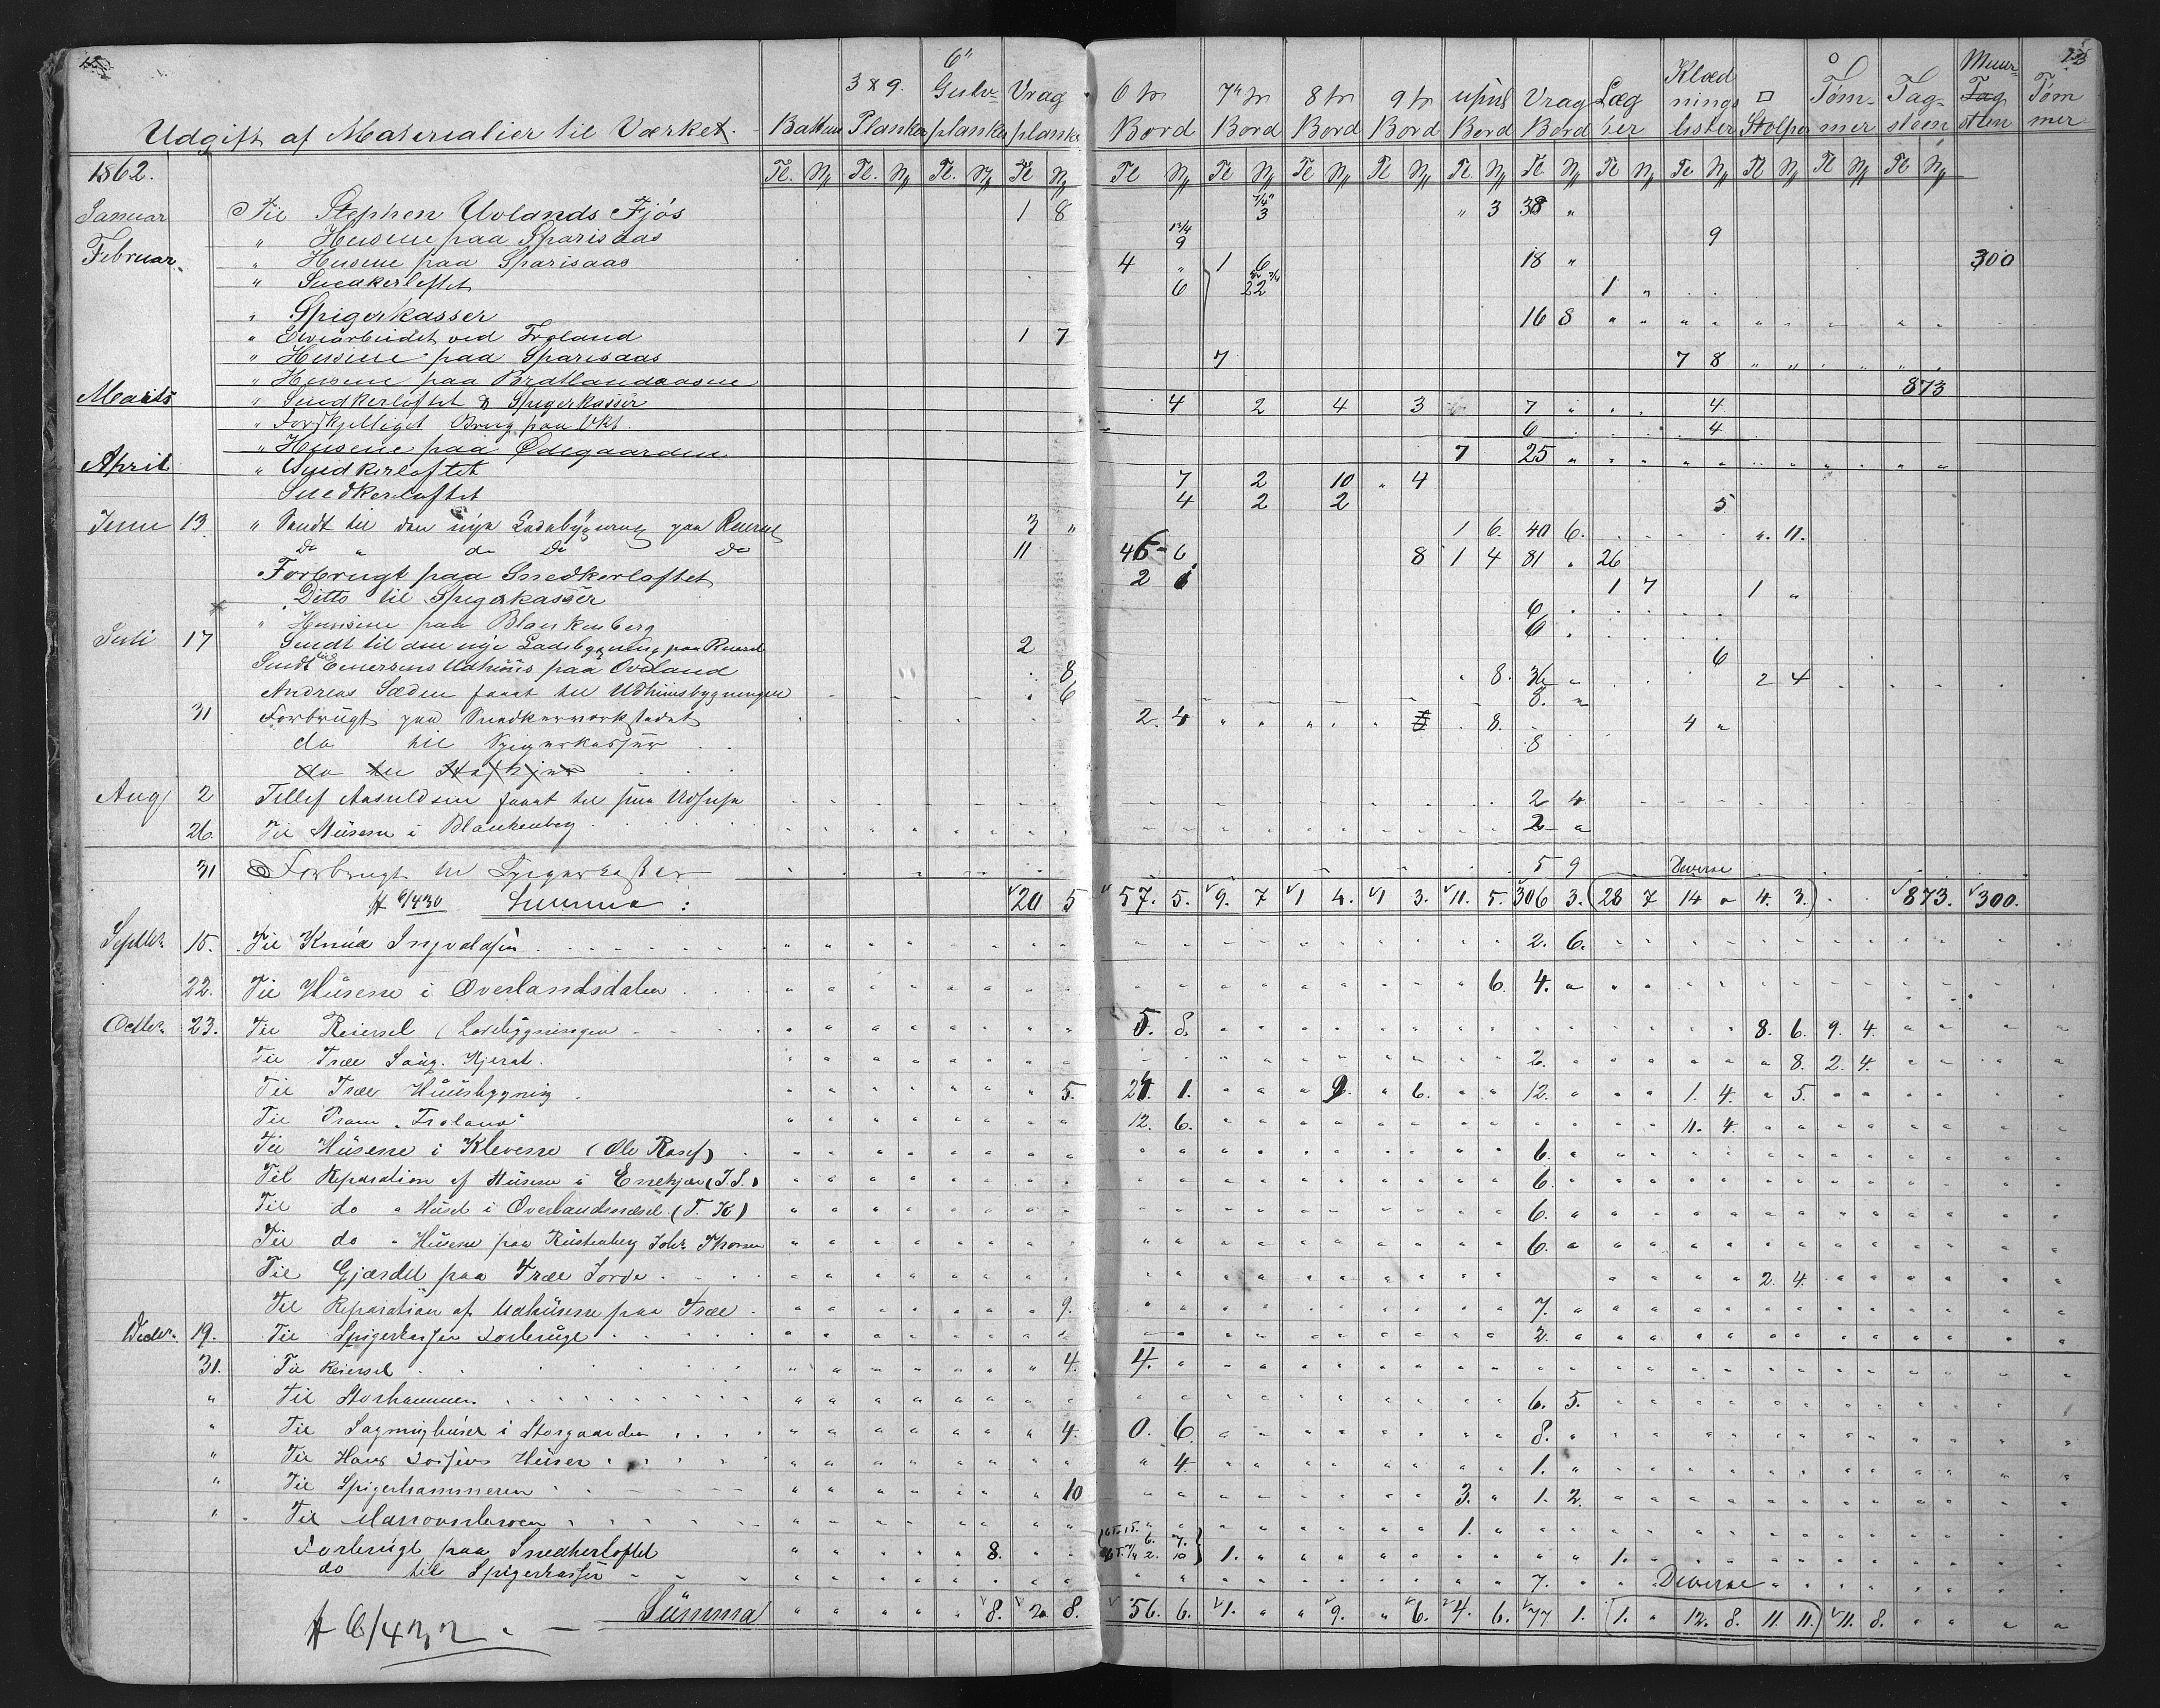 Udgift af Materialier til Værket.
Battens | 3 x 9. Planker | 6" Gulvplanker | Vrag planke | 6 tr Bord | 7" tr Bord | 8 tr Bord | 9 tr Bord | upul Bord | Vrag Bord | Lægter | Klædnings lister | □ Stolper | Tømmer | Tagsteen | Muursteen | Tømmer
1862. Tl. N Tl. N Tl. N Tl N Tl N Tl N Tl N Tl N Tl. N Tl. N Tl N Tl. N Tl N Tl N Tl N
Januar Til Stephen Uvlands Fjøs 1 8 7/4" 3 " 3 38 "
" Husene paa Sparisaas 1 1/4 9 9
Februar " Husene paa Sparisaas 4 " 1 6 18 " 300
" Snedkerloftet 6 22 1 "
" Spigerkasser 16 8
" Elvearbeidet ved Froland 1 7
" Husene paa Sparisaas 7 7 8
" Husene paa Bratlandsaasne 873
Marts " Snedkerloftet & Spigerkasser 4 2 4 3 7 4
" Forskjelliget Brug paa Vkt. 6 4
" Husene paa Ødegaarden 7 25
April " Snedkerloftet 7 2 10 4
Snedkerloftet 4 2 2 5
Juni 13. " Sendt til den nye Ladebygning paa Reiersel 3 " 1 6. 40 6. ". 11.
Do " do Do Do 11 46 6 8 1 4 81 . 26
Forbrugt paa Snedkerloftet 2 1 1 7 1 "
Ditto til Spigerkasser 6
" Husene paa Blankenberg 6
Juli 17 Sendt til den nye Ladebygning paa Reiersel 2 6
Sendt til Einersens Udhuus paa Oveland 8 8. 36 " 2 4
Andreas Sæden faaet til Udhuusbygningen 6 8.
31 Forbrugt paa Snedkerværkstedet 2. 4 8. 4 "
do til Spigerkasser 8
do til
Aug 2 Tellef Aasuldsen faaet til sine Udhuse 2 4
26. Til Husene i Blankenberg 2 "
31 Forbrugt til Spigerkasser 5 9 Diverse
# 6/430 Summa: 20 5 57. 5. 9. 7 1 4. 1 3. 11. 5. 306 3. (28 7 14 " 4. 3.) 873. 300.
Septbr. 15. Til Knud Ingvaldsen 2. 6.
22. Til Husene i Overlandsdalen 6. 4. "
Octbr. 23. Til Reiersel (Ladebygningen 5. 8. 8. 6. 9. 4.
Til Træe Saug. Kjerat. 2. 8. 2. 4.
Til Træe Huusbygning 5. 21. 1. 9. 6. 12. 1. 4. 5.
Til Pram "Froland" 12. 6. 11. 4.
Til Husene i Klevene (Ole Rasch) 6.
Til Reparation af Husene i Enekjær (J. S.) 6.
Til do " Huset i Overlandsnæset (T. K) 6.
Til do " Husene paa Rustenberg John Thorsen 6.
Til Gjærdet paa Træe Jorde 2. 4.
Til Reparation af Udhusene paa Træe 9. 7.
Decbr. 19. Til Spigerkasser Forbrugt 2.
31. Til Reiersel 4. 4.
" Til Storhammeren 6. 5.
" Til Sagmughuset i Storgaarden 4. 0. 6. 8.
" Til Hans Huuser 4. 1.
" Til Spigerhammeren 10 3. 1. 2.
" Til 1.
Forbrugt paa Snedkerloftet 8. 6. 7. 2. 10 1. 1.
do til Spigerkasser 7. Diverse
# 6/432 Summa 8. 2 8. 56. 6. 1. 9. 6. 4. 6. 77 1. (1. " 12. 8. 11. 11.) 11. 8.